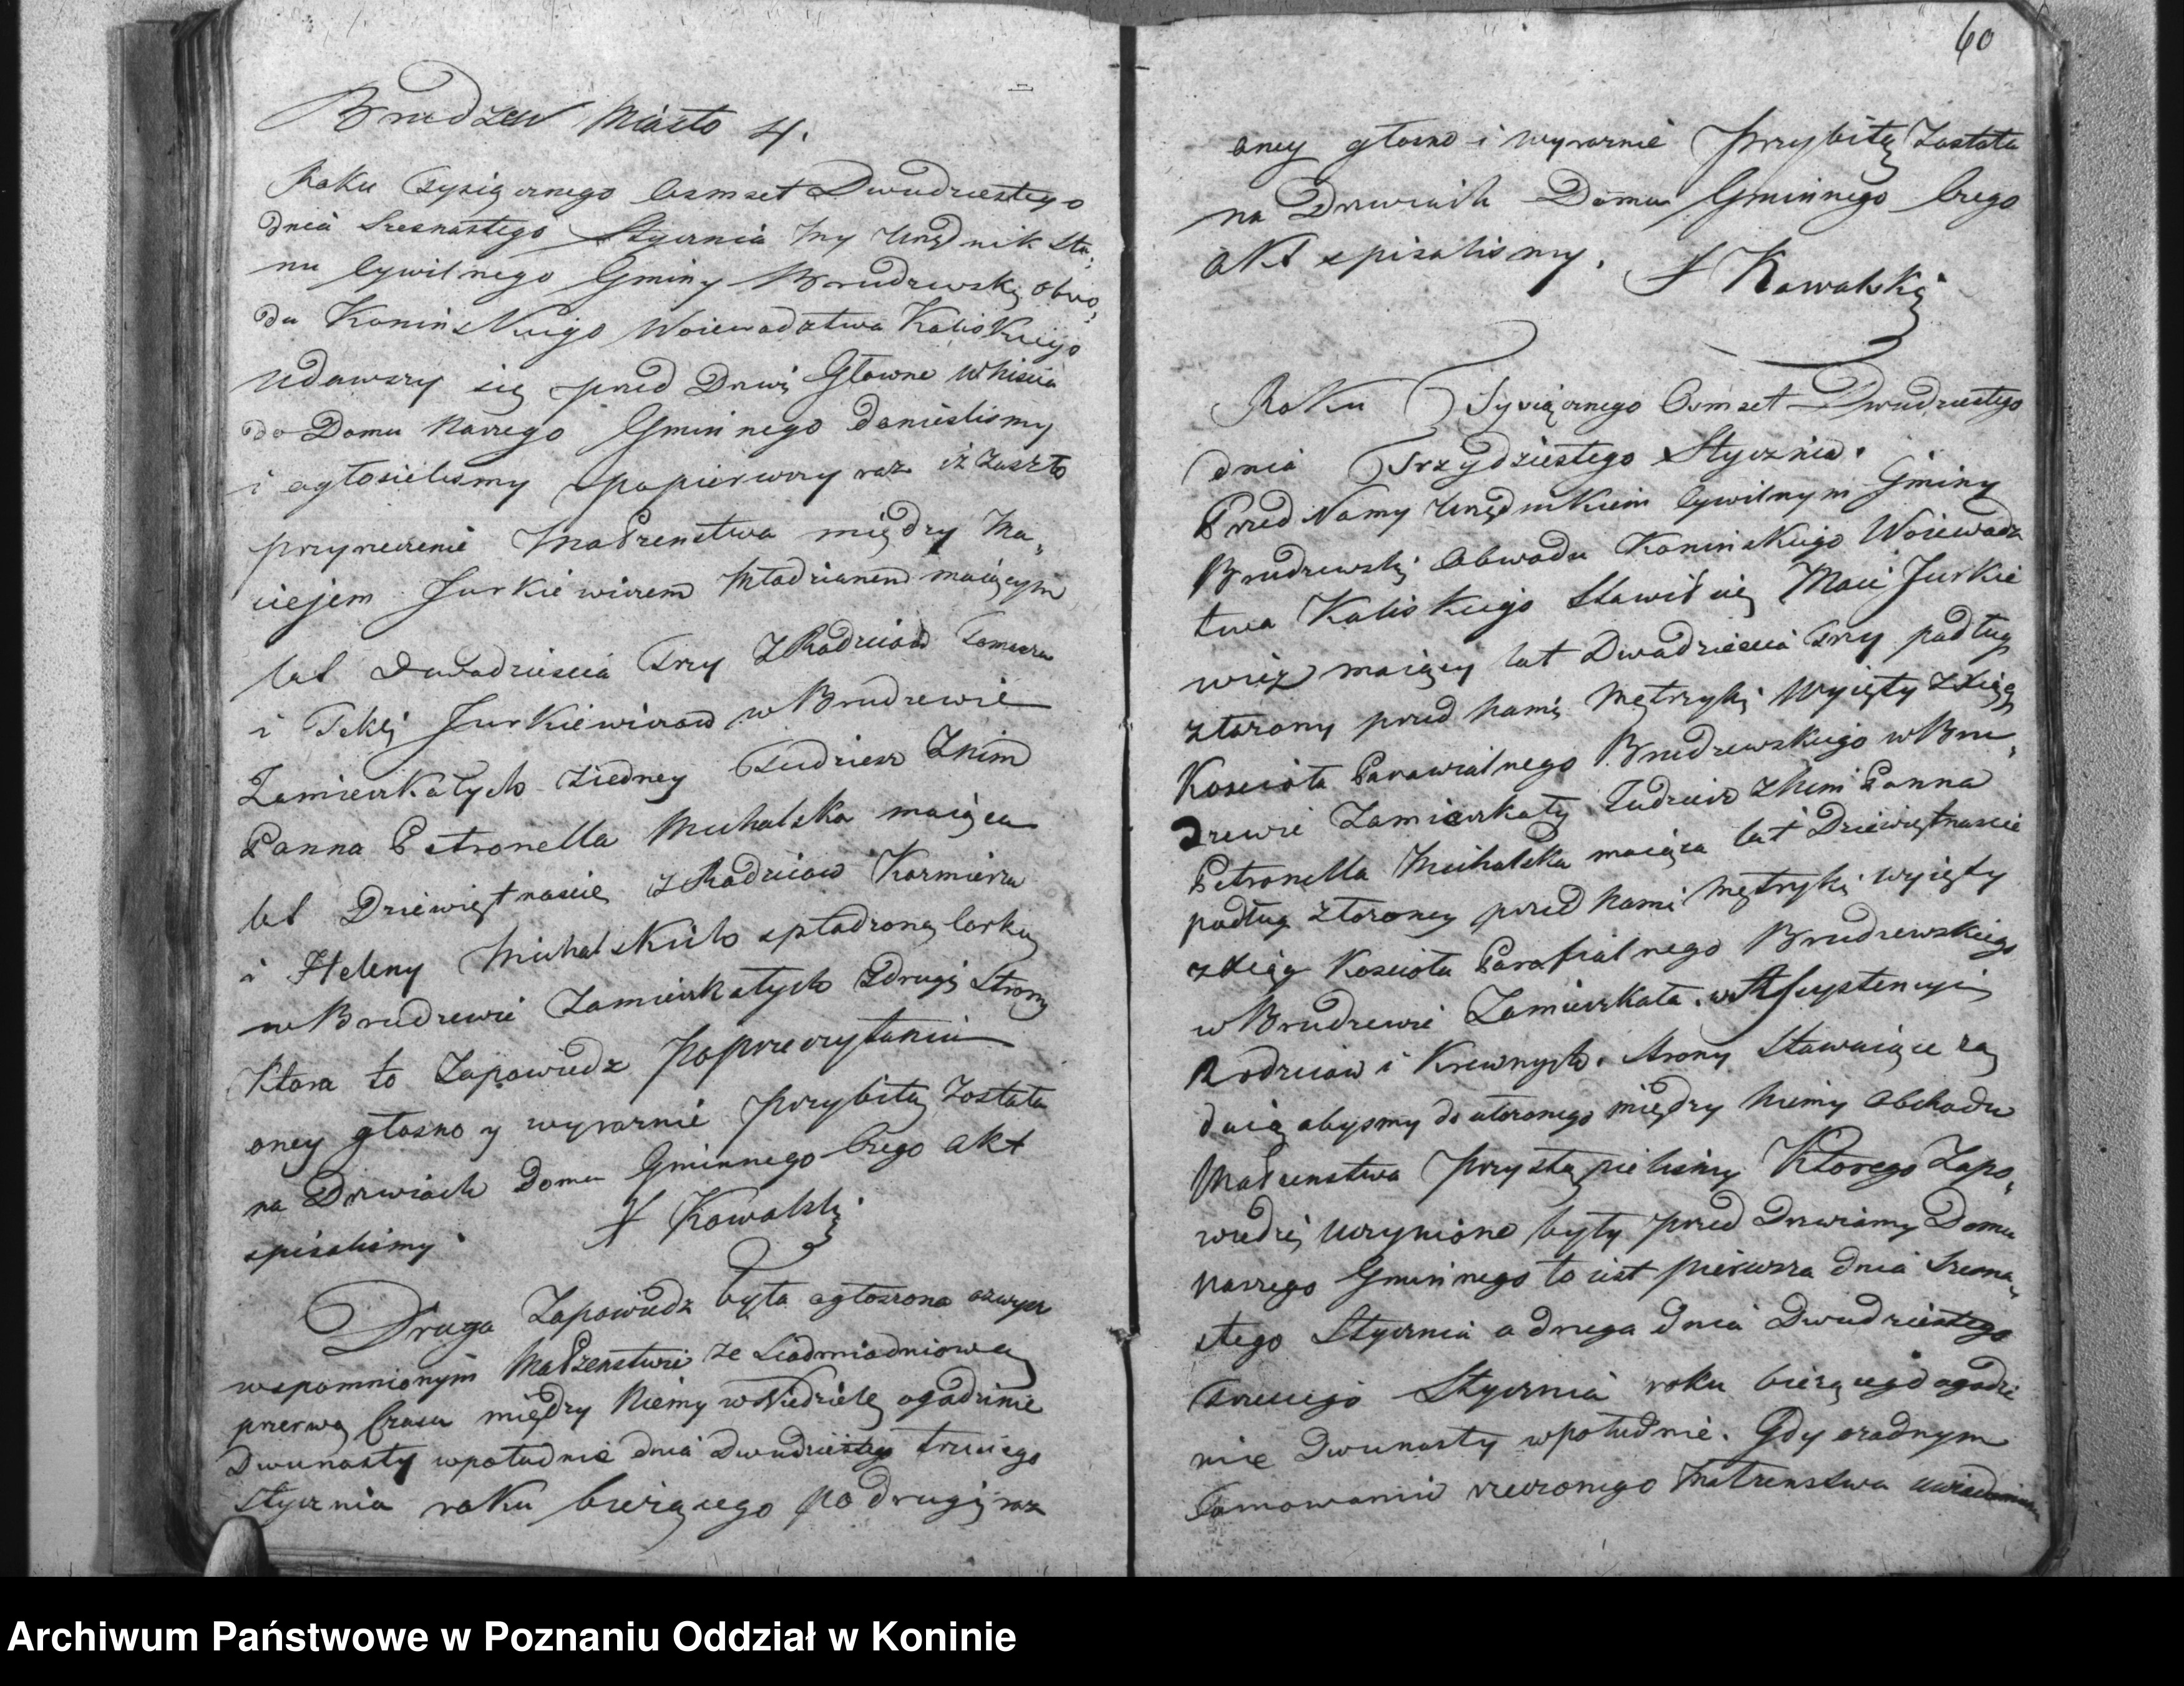 Brudzew Miasto 4.
Roku Tysiącznego Osmset Dwudziestego
dnia Szesnastego Stycznia My Urzędnik Sta:
nu Cywilnego Gminy Brudzewskiy Obwo:
du Koninskiego Woiewodztwa Kaliskiego
Udawszy się przed Drzwi Głowne Whiscia
do Domu Naszego Gminnego donieslismy
i ogłosielismy popierwszy raz iż zaszło
przyrzeczenie Małżenstwa między Ma:
ciejem Jurkiewiczem Młodzianem maiącym
lat Dwadziescia Trzy z Rodzicow Tomasza
i Tekli Jurkiewiczow w Brudzewie
Zamieszkałych ziedney Tudziesz Znim
Panna Petronella Michalska maiąca
lat Dziewiętnascie z Rodzicow Kazmierza
i Heleny Michalskich spłodzoną Corką
w Brudzewie Zamieszkałych z drugi Strony
Ktora to Zapowiedz Poprzeczytaniu
oney głosno y wyraznie przybitą Została
na Drzwiach Domu Gminnego Czego akt
spisalismy. Kowalski
Druga Zapowiedz była ogłoszona
wspomnionym Małżenstwie ze Siodmiodniową
przerwą Czasu między Niemy w Niedzielę ogodzinie
Dwunasty wpołudnie dnia Dwudziestego trzeciego
Stycznia roku bieżącego po drugi raz
60
oney głosno i wyraznie Przybitą Została
na Drzwiach Domu Gminnego Czego
akt spisalismy. Kowalski
Roku Tysiącznego Osmset Dwudziestego
dnia Trzydziestego Stycznia.
Przed Namy Urzędnikiem Cywilnym Gminy
Brudzewski Obwodu Koninskiego Woiewodz
twa Kaliskiego Stawił się Maci Jurkie
wicz maiący lat Dwadziescia Trzy podług
złozony przed Nami Metryki Wyięty z Xiąg
Koscioła Parawialnego Brudzewskiego w Bru:
dzewie Zamieszkały Tudziesz Znim Panna
Petronella Michalska maiąca lat Dziewiętnascie
podług złozoney przed Nami Metryki wyięty
z Xiąg Koscioła Parafialnego Brudzewskiego
w Brudzewie Zamieszkała. w Assystencyi
Rodzicow i Krewnych. Strony Stawaiące żą
daią abysmy do ułozonego między Niemy Obchodu
Małzenstwa przystąpielismy Ktorego Zapo:
wiedzi uczynione były przed Drzwiamy Domu
Naszego Gminnego to iest pierwsza dnia Szesna:
stego Stycznia a druga dnia Dwudziestego
Trzeciego Stycznia roku bieżącego ogodzi
nie Dwunasty wpołudnie. Gdy ozadnym
Tamowaniu rzeczonego Małżenstwa
Archiwum Państwowe w Poznaniu Oddział w Koninie